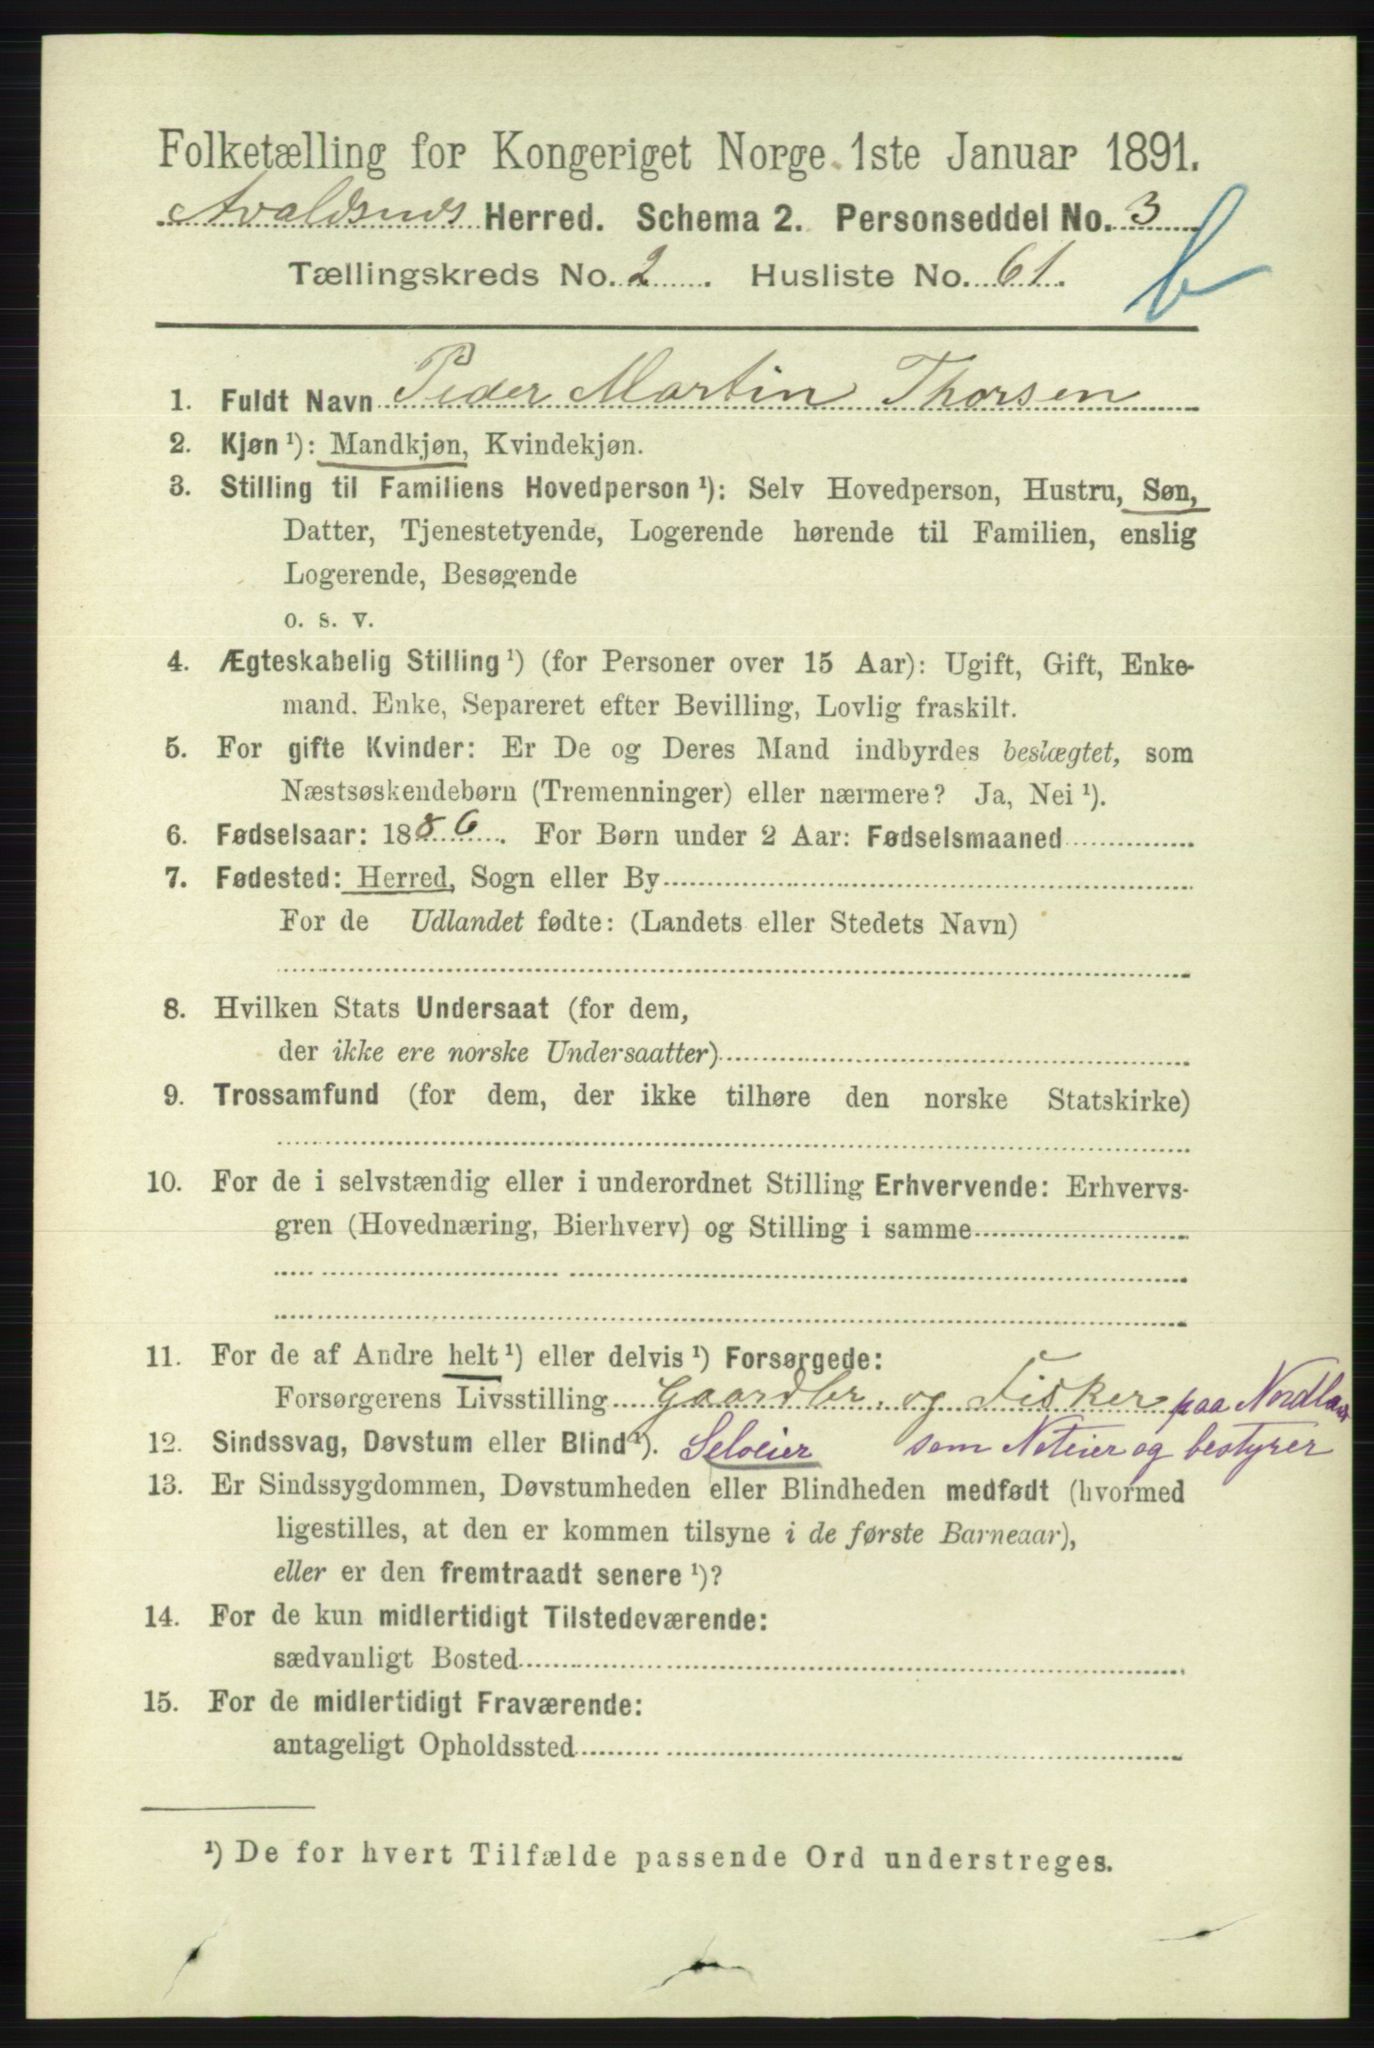 Folketælling for Kongeriget Norge 1ste Januar 1891.
Avaldsnes Herred. Schema 2. Personseddel No. 3
b
Tællingskreds No. 2. Husliste No. 61.
1. Fuldt Navn Peder Martin Thorsen
2. Kjøn ¹): Mandkjøn, Kvindekjøn.
3. Stilling til Familiens Hovedperson ¹): Selv Hovedperson, Hustru, Søn,
Datter, Tjenestetyende, Logerende hørende til Familien, enslig
Logerende, Besøgende
o. s. v.
4. Ægteskabelig Stilling ¹) (for Personer over 15 Aar): Ugift, Gift, Enke-
mand. Enke, Separeret efter Bevilling, Lovlig fraskilt.
5. For gifte Kvinder: Er De og Deres Mand indbyrdes beslægtet, som
Næstsøskendebørn (Tremenninger) eller nærmere? Ja, Nei ¹).
6. Fødselsaar: 1886. For Børn under 2 Aar: Fødselsmaaned
7. Fødested: Herred, Sogn eller By
For de Udlandet fødte: (Landets eller Stedets Navn)
8. Hvilken Stats Undersaat (for dem,
der ikke ere norske Undersaatter)
9. Trossamfund (for dem, der ikke tilhøre den norske Statskirke)
10. For de i selvstændig eller i underordnet Stilling Erhvervende: Erhvervs-
gren (Hovednæring, Bierhverv) og Stilling i samme
11. For de af Andre helt ¹) eller delvis ¹) Forsørgede:
Forsørgerens Livsstilling Gaardbr. og Fisker paa Nordland
12. Sindssvag, Døvstum eller Blind ¹). Seloeier som Noteier og bestyrer
13. Er Sindssygdommen, Døvstumheden eller Blindheden medfødt (hvormed
ligestilles, at den er kommen tilsyne i de første Barneaar),
eller er den fremtraadt senere ¹)?
14. For de kun midlertidigt Tilstedeværende:
sædvanligt Bosted
15. For de midlertidigt Fraværende:
antageligt Opholdssted
¹) De for hvert Tilfælde passende Ord understreges.